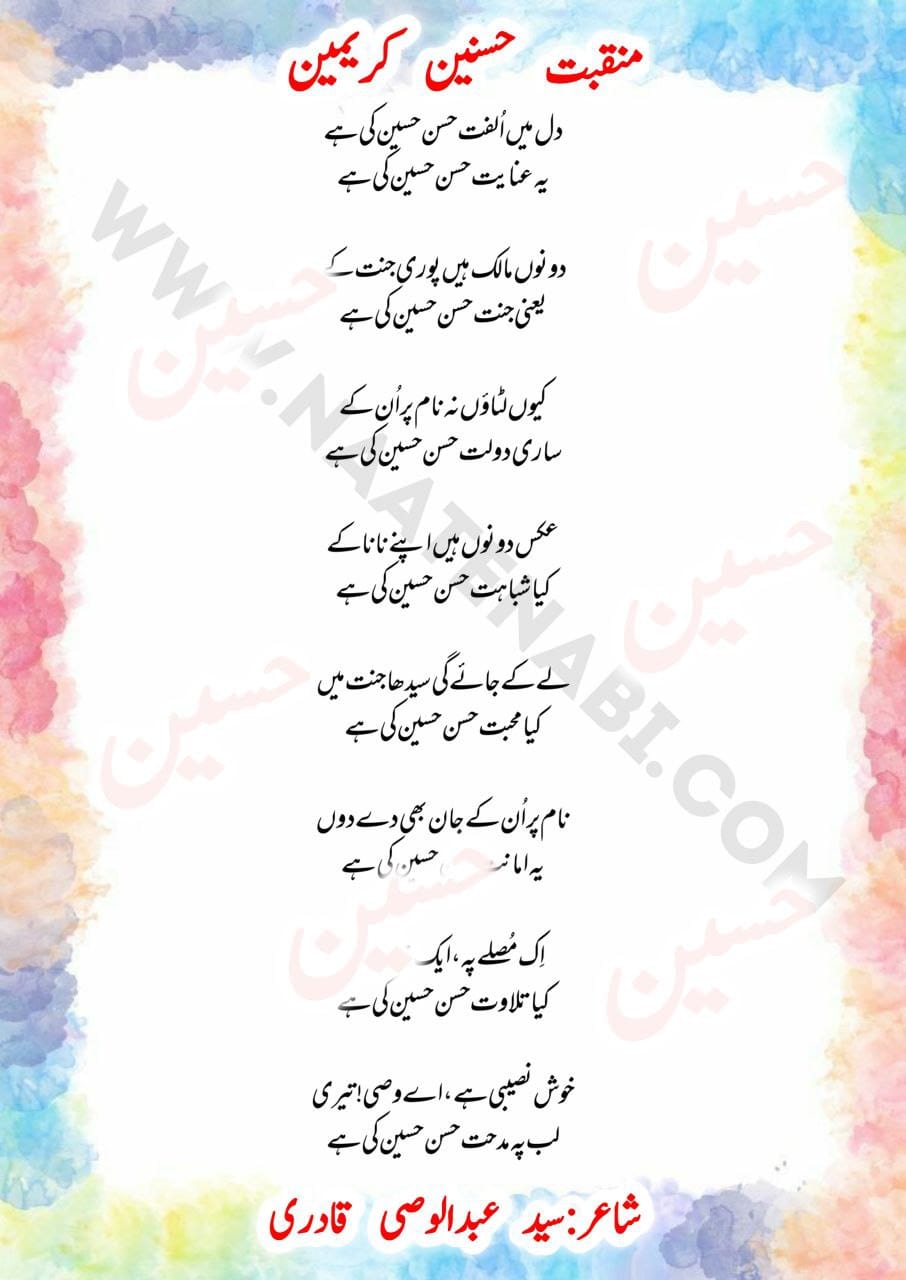 منقبت حسنین کریمین
دل میں اُلفت حسن حسین کی ہے
یہ عنایت حسن حسین کی ہے
دونوں مالک ہیں پوری جنت کے
یعنی جنت حسن حسین کی ہے
کیوں لٹاؤں نہ نام پر اُن کے
ساری دولت حسن حسین کی ہے
عکس دونوں ہیں اپنے نانا کے
کیا شباہت حسن حسین کی ہے
لے کے جائے گی سیدھا جنت میں
کیا محبت حسن حسین کی ہے
نام پر اُن کے جان بھی دے دوں
یہ حسین کی ہے
اِک مُصلے پہ، ایک
کیا تلاوت حسن حسین کی ہے
خوش نصیبی ہے، اے وصی! تیری
لب پہ مدحت حسن حسین کی ہے
شاعر: سید عبدالوصی قادری
WWW.NAATENABI.COM
حسین
حسین
حسین
حسین
حسین
حسین